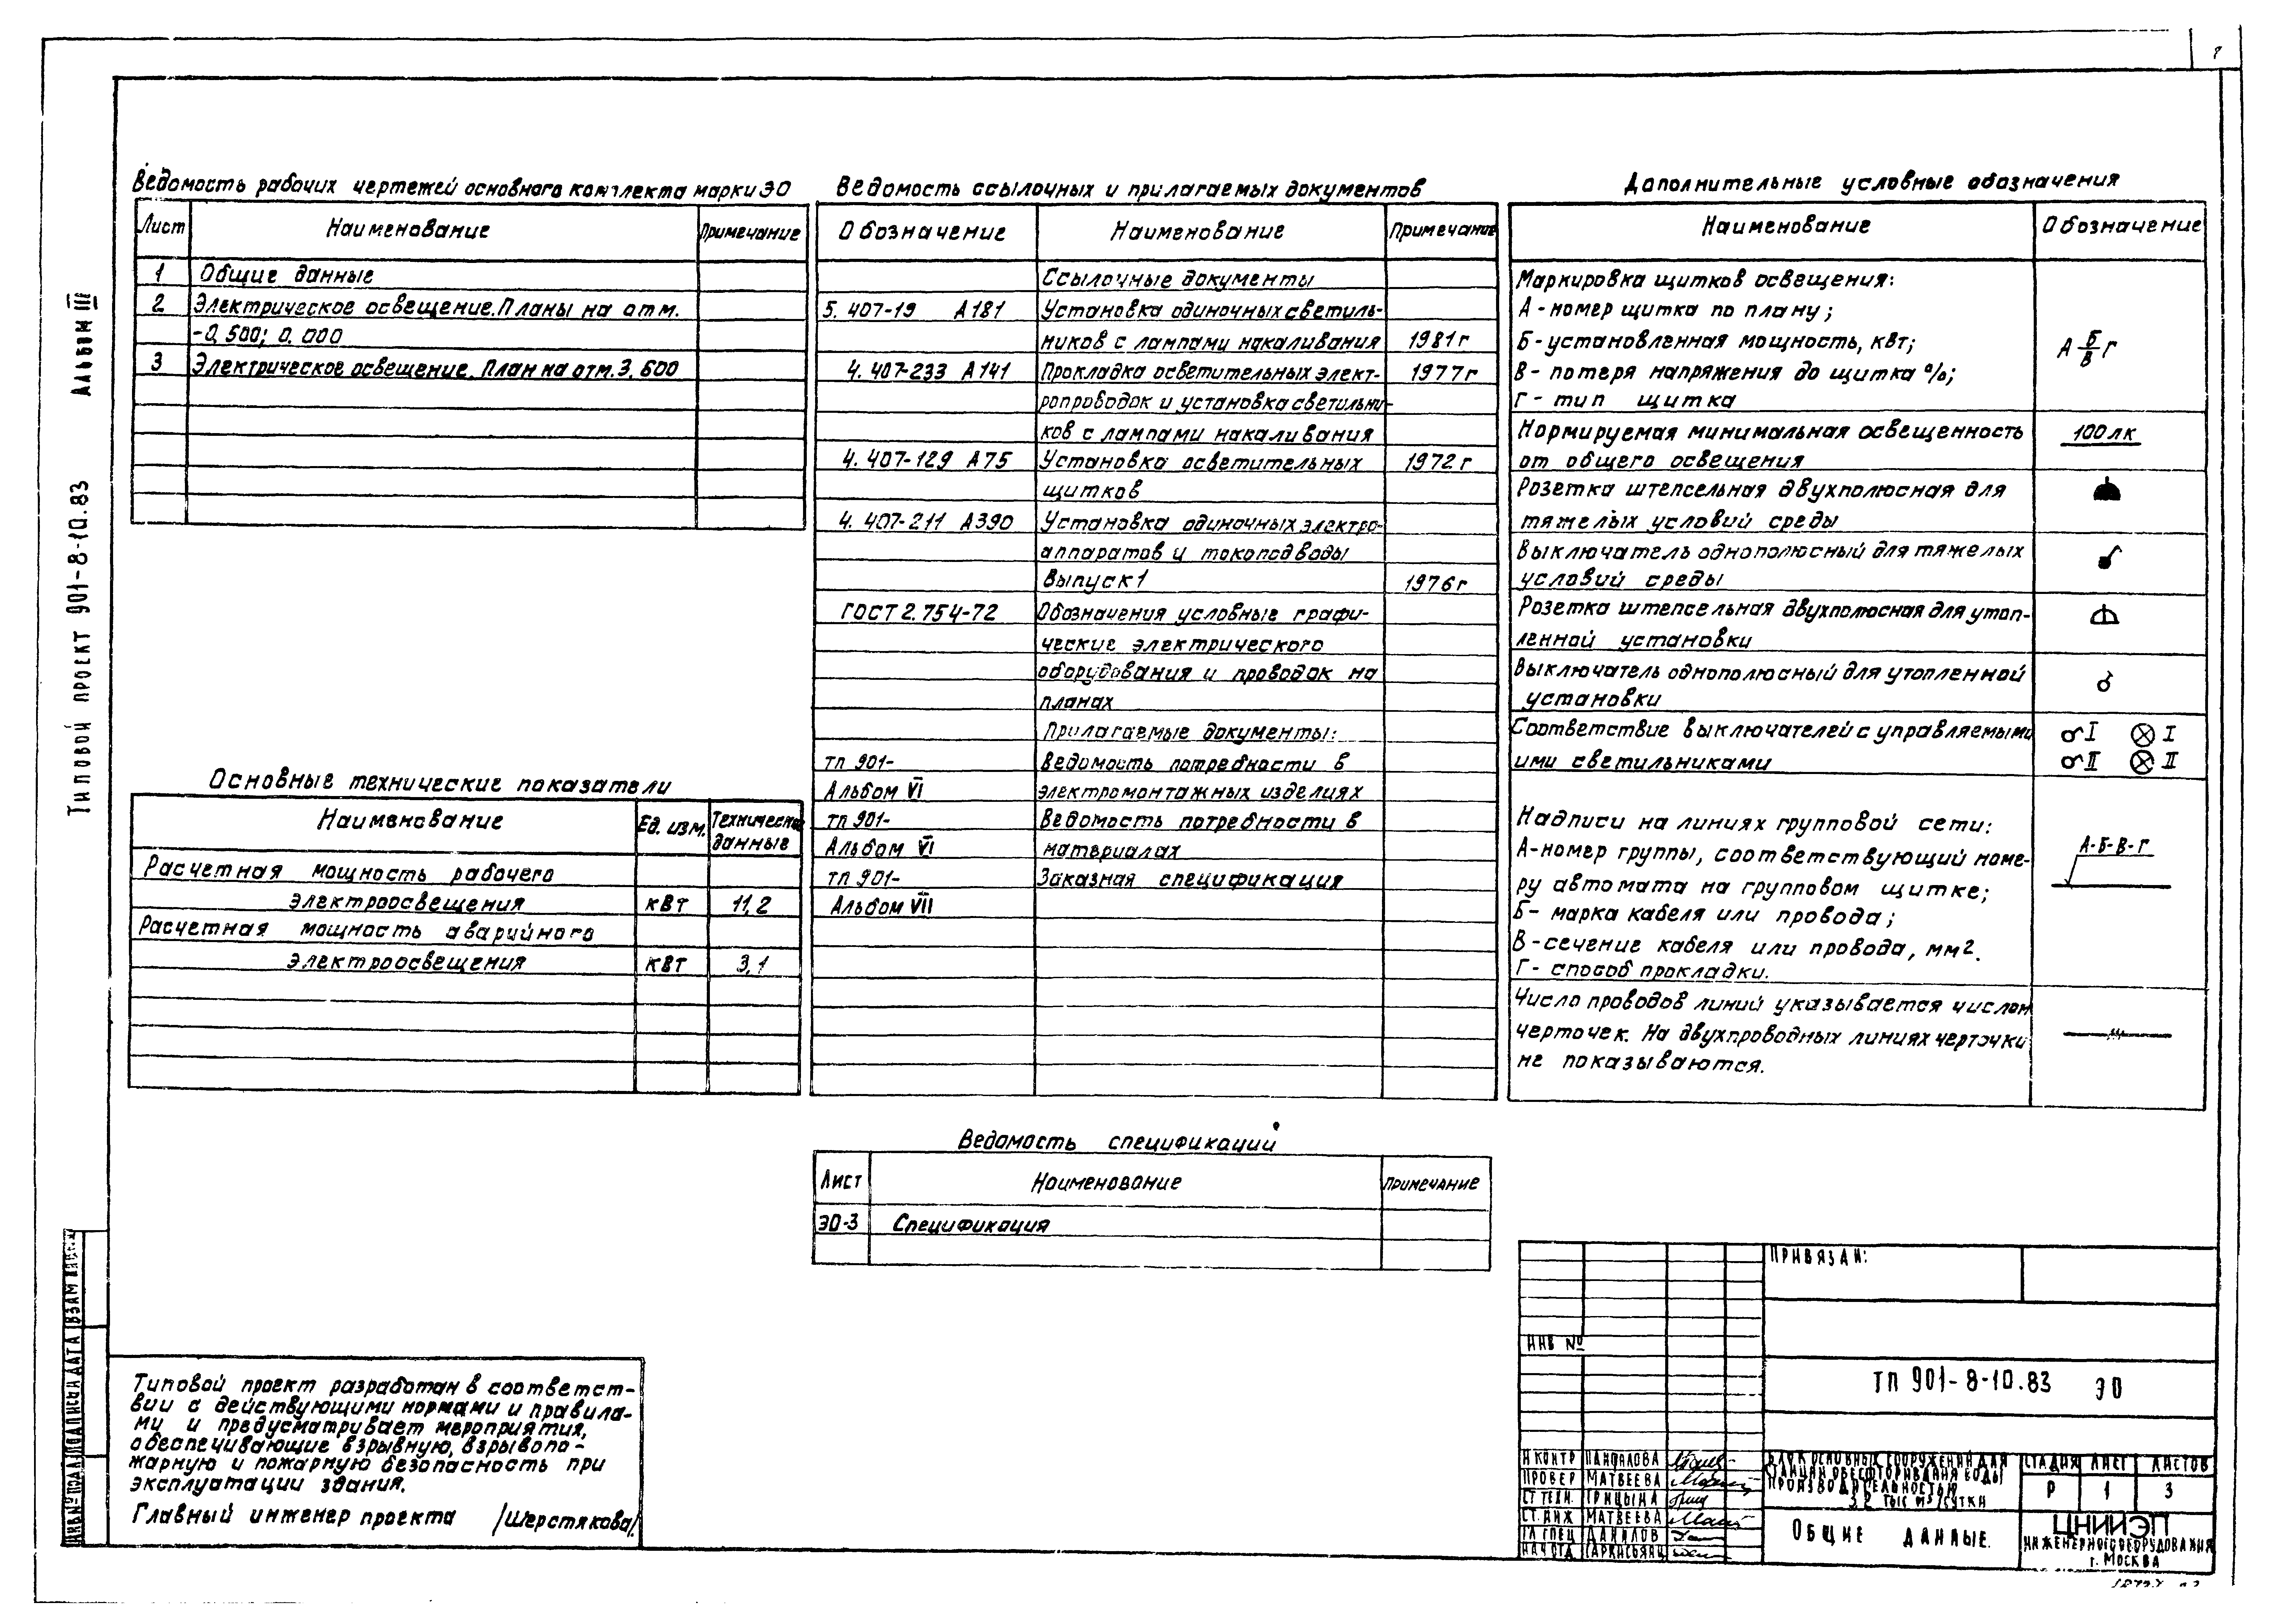 Альбом III
Типовой проект 901-8-10.83
Ведомость рабочих чертежей основного комплекта марки ЭО
Лист Наименование Примечание
1 Общие данные
2 Электрическое освещение. Планы на отм.
-0,500; 0,000
3 Электрическое освещение. План на отм. 3,600
Основные технические показатели
Наименование Ед. изм. Технические данные
Расчетная мощность рабочего
электроосвещения кВт 11,2
Расчетная мощность аварийного
электроосвещения кВт 3,1
Ведомость ссылочных и прилагаемых документов
Обозначение Наименование Примечание
Ссылочные документы
5.407-19 А181 Установка одиночных светиль-
ников с лампами накаливания 1981г
4.407-233 А141 Прокладка осветительных элект- 1977г
ропроводок и установка светильни-
ков с лампами накаливания
4.407-129 А75 Установка осветительных 1972г
щитков
4.407-211 А390 Установка одиночных электро-
аппаратов и токоподводы
Выпуск 1 1976г
ГОСТ 2.754-72 Обозначения условные графи-
ческие электрического
оборудования и проводок на
планах
Прилагаемые документы:
тп 901- Ведомость потребности в
Альбом VI электромонтажных изделиях
тп 901- Ведомость потребности в
Альбом VI материалах
тп 901- Заказная спецификация
Альбом VII
Ведомость спецификаций
Лист Наименование Примечание
ЭО-3 Спецификация
Дополнительные условные обозначения
Наименование Обозначение
Маркировка щитков освещения:
А - номер щитка по плану;
Б - установленная мощность, кВт;
В - потеря напряжения до щитка %;
Г - тип щитка
А Б/В Г
Нормируемая минимальная освещенность 100лк
от общего освещения
Розетка штепсельная двухполюсная для
тяжелых условий среды
Выключатель однополюсный для тяжелых
условий среды
Розетка штепсельная двухполюсная для утоп-
ленной установки
Выключатель однополюсный для утопленной
установки
Соответствие выключателей с управляемыми I I
ими светильниками II II
Надписи на линиях групповой сети:
А-номер группы, соответствующий номе- А-Б-В-Г
ру автомата на групповом щитке;
Б- марка кабеля или провода;
В-сечение кабеля или провода, мм2.
Г- способ прокладки.
Число проводов линий указывается числом
черточек. На двухпроводных линиях черточки
не показываются.
Типовой проект разработан в соответст-
вии с действующими нормами и правила-
ми и предусматривает мероприятия,
обеспечивающие взрывную, взрывопо-
жарную и пожарную безопасность при
эксплуатации здания.
Главный инженер проекта /Шерстякова/
Инв № подл Подпись и дата Взам
Привязан:
Инв №
ТП 901-8-10.83 ЭО
Н контр Панфилова
Провер Матвеева
Ст техн. Грицына
Ст. инж Матвеева
Гл спец Данилов
Нач отд
Блок основных сооружений для
станции обесфторивания воды
производительностью
3,2 тыс м3/сутки
Стадия Лист Листов
Р 1 3
Общие данные.
ЦНИИЭП
инженерного оборудования
г. Москва